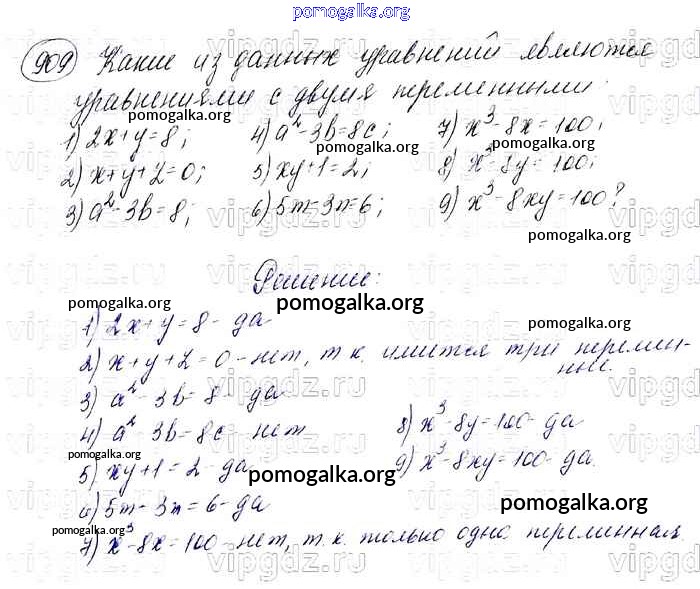 pomogalka.org
909 Какие из данных уравнений являются
уравнениями с двумя переменными:
pomogalka.org
1) 2x+y=8; 4) a²-3b=8c; 7) x³-8x=100;
pomogalka.org
2) x+y+z=0; 5) xy+1=2; 8) x³-8y=100;
pomogalka.org
3) a²-3b=8; 6) 5m-3n=6; 9) x³-8xy=100?
pomogalka.org
vipgdz.ru
Решение:
pomogalka.org
pomogalka.org
1) 2x+y=8 - да
pomogalka.org
2) x+y+z=0 - нет, т.к. имеется три перемен-
ные.
3) a²-3b=8 - да
4) a²-3b=8c - нет 8) x³-8y=100 - да
pomogalka.org
5) xy+1=2 - да 9) x³-8xy=100 - да.
pomogalka.org
6) 5m-3n=6 - да
pomogalka.org
pomogalka.org
7) x³-8x=100 - нет, т.к. только одна переменная.
vipgdz.ru